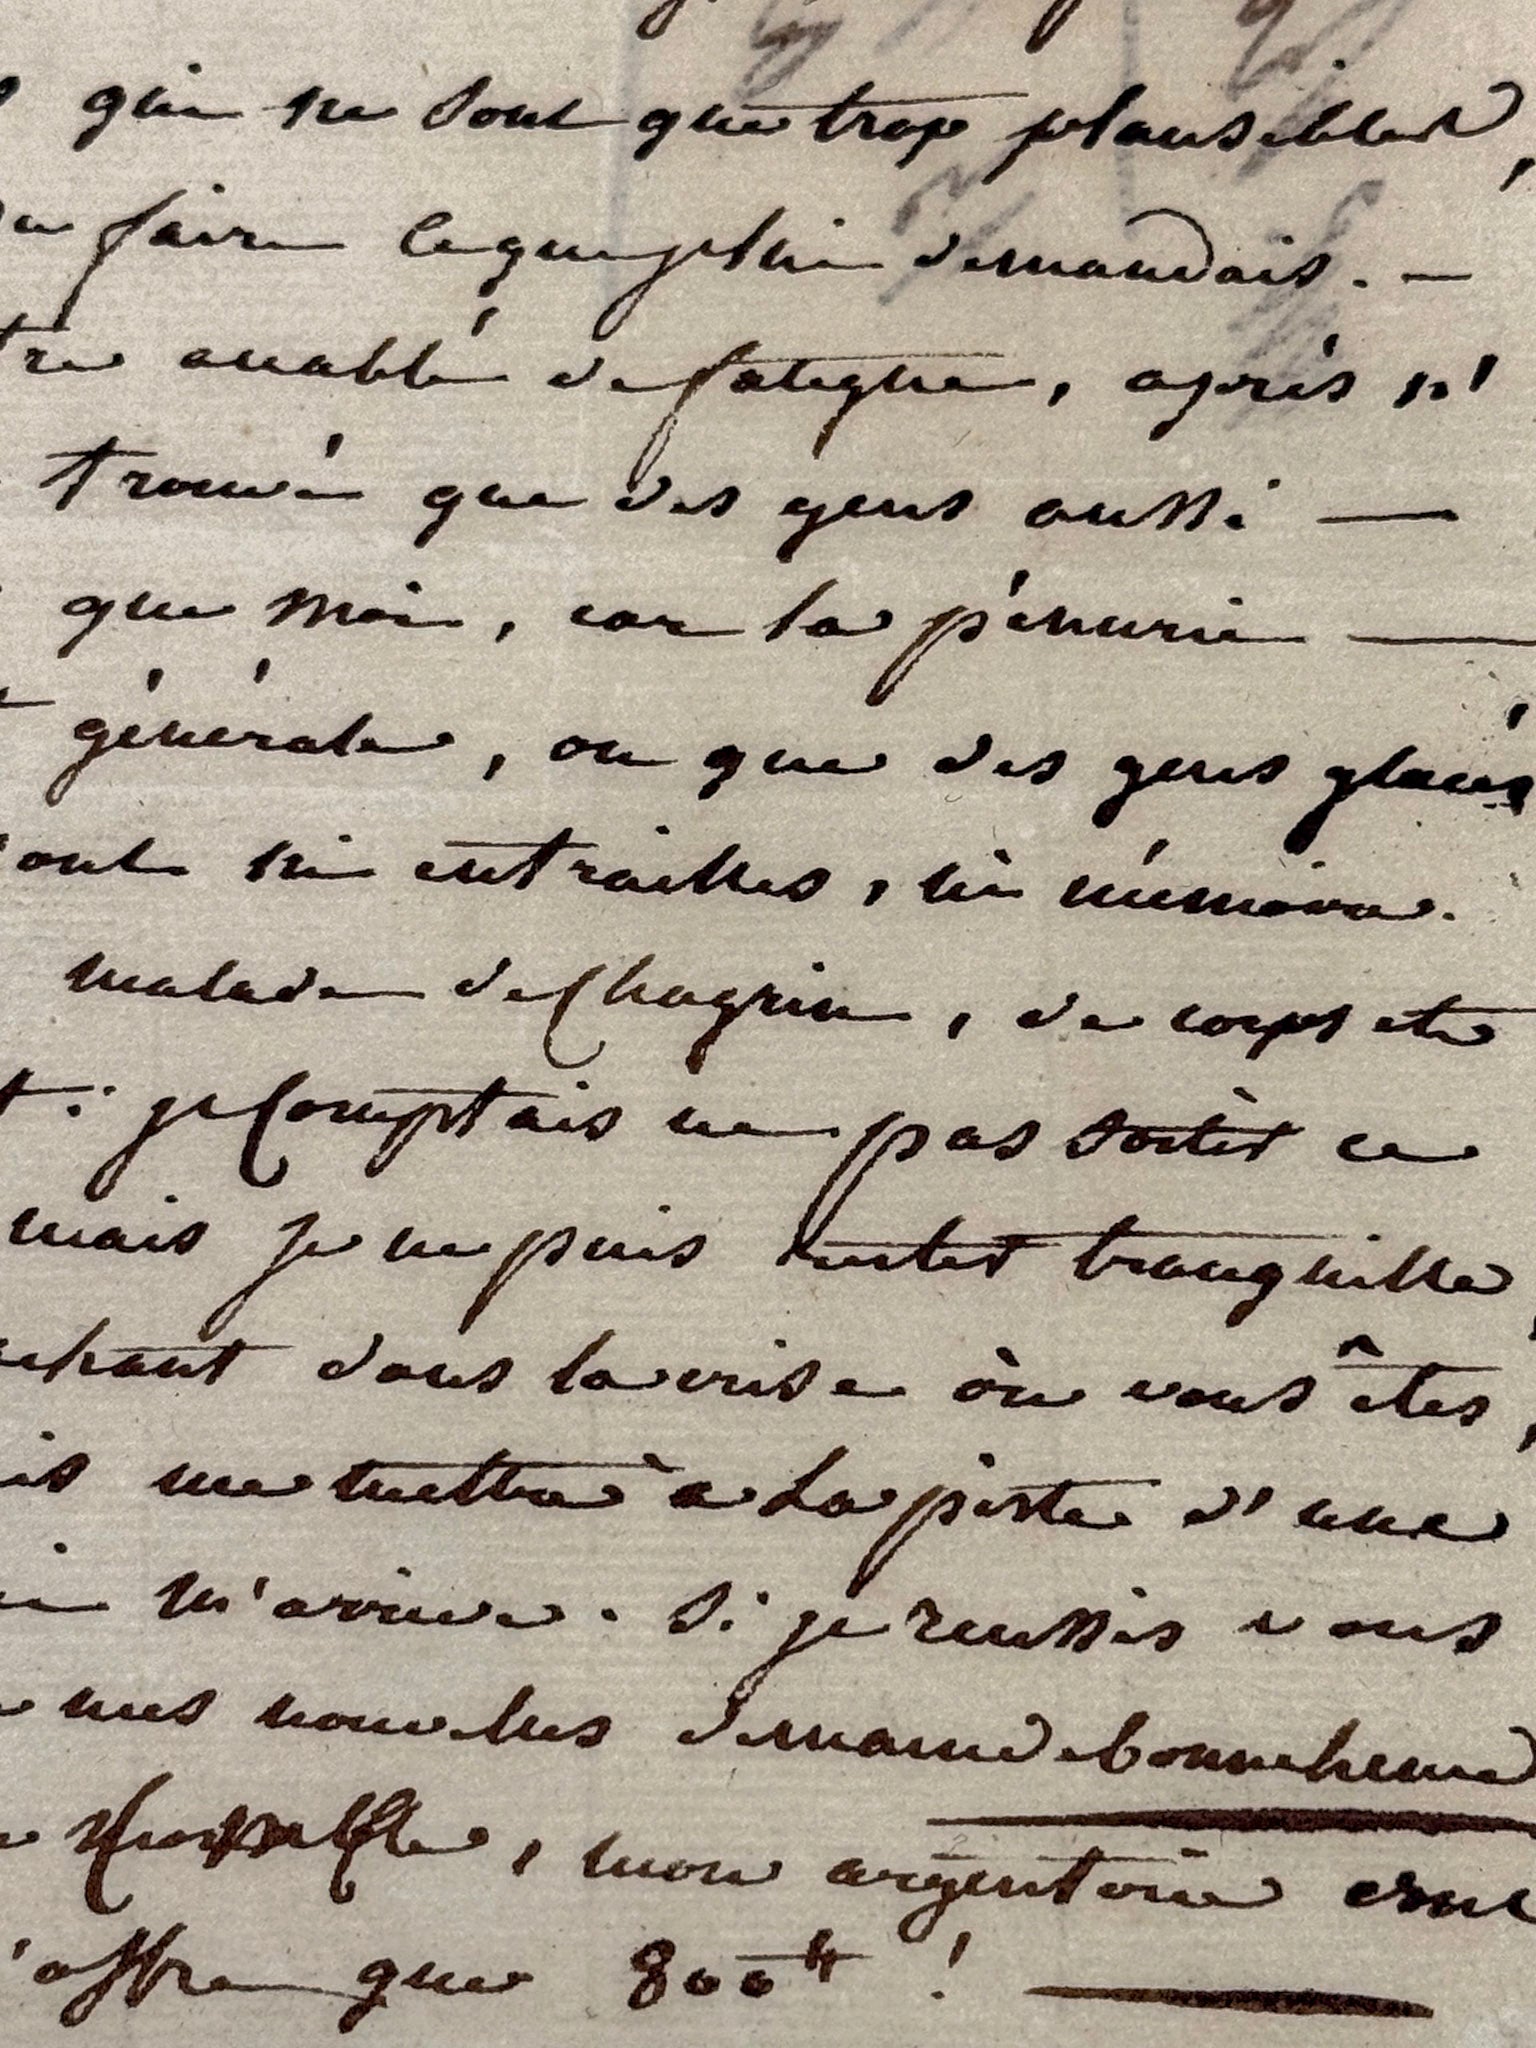 qui ne sont que trop plausibles,
faire ce que je lui demandais. —
accablé de fatigue, après n'
trouvé que des gens aussi —
que moi, car la pénurie —
générale, ou que des gens glacés
ont ni entrailles, ni mémoire.
malade de chagrin, de corps et
: je comptais ne pas sortir ce
mais je ne puis rester tranquille
chant dans la crise où vous êtes,
is me mettre à la piste d'une
m'arrive. Si je reussis vous
mes nouvelles demain de bonne heure
, mon argenterie
'offre que 800 ₶ ! —